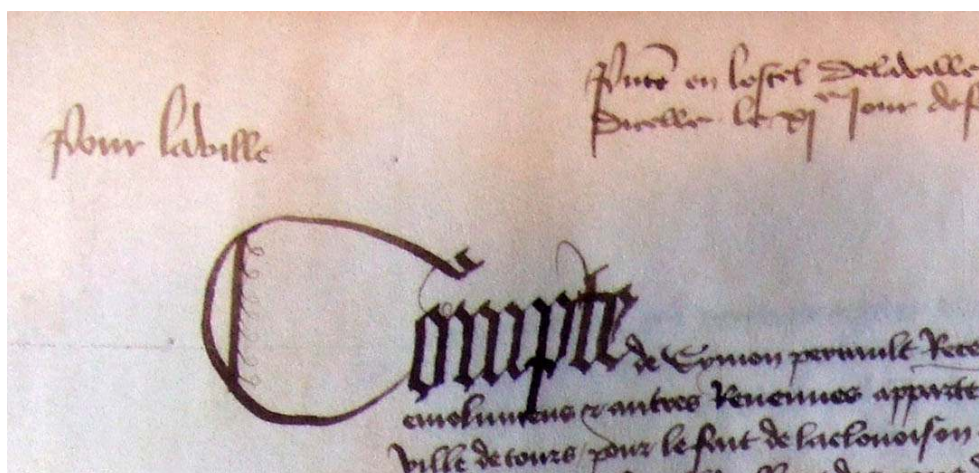 Pour la ville
en lostel de la ville
dicelle le xie jour de
Compte
de Symon perrault Rece
emolumens & autres Revenues apparte
ville de tours pour le fait de la clouoison